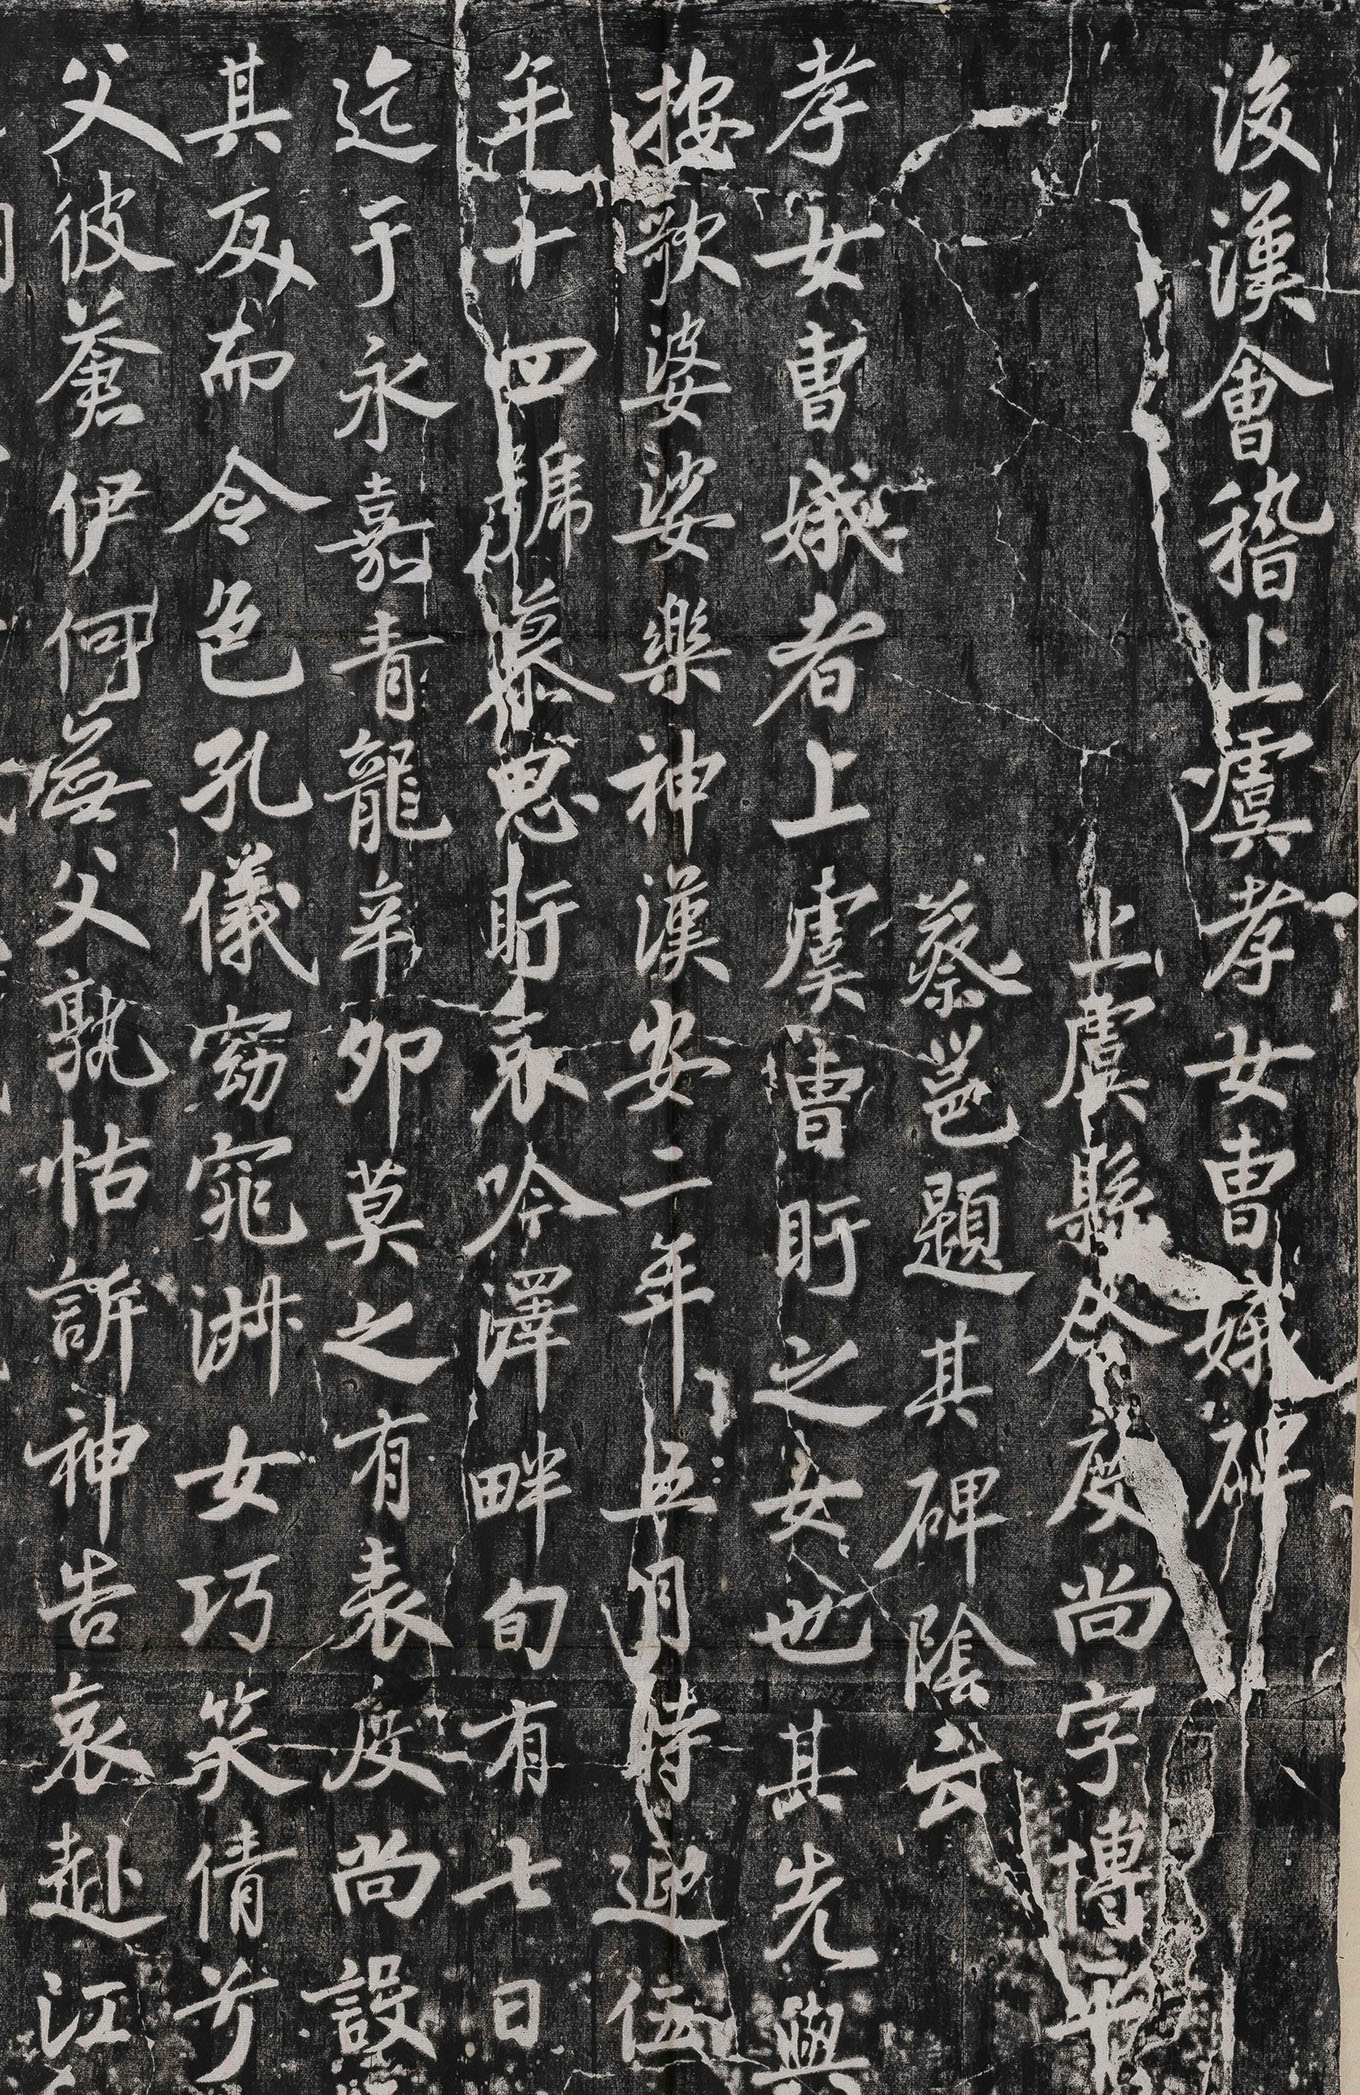 後漢會稽上虞孝女曹娥碑
上虞縣令度尚字博平
蔡邕題其碑陰云
孝女曹娥者上虞曹盱之女也其先與
按歌婆娑樂神漢安二年五月時迎伍
年十四號慕思盱哀吟澤畔旬有七日
迄于永嘉青龍辛卯莫之有表度尚設
其反而令色孔儀窈窕淑女巧笑倩兮
父彼蒼伊何無父孰怙訴神告哀赴江